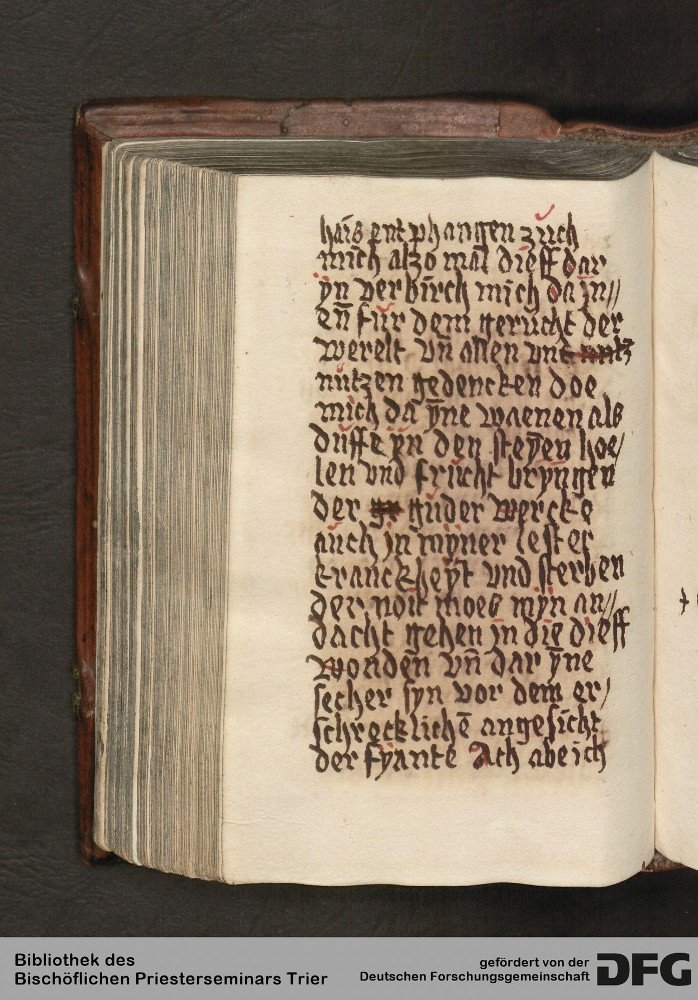 hais entphangen zuch
mich alzo mal dieff dar
ÿn verbirch mich da jn//
eñ fur dem gerucht der
werelt vñ allen vnt
nutzen gedencken doe
mich da ÿne waenen als
duffe ÿn den steÿen hoe/
len vnd frucht bryngen
der guder wercke
auch jn mÿner lester
kranckheÿt vnd sterben
der noit moes mÿn an//
dacht gehen jn die dieff
wonden vñ dar ÿne
secher syn vor dem er/
schrecklichē angesicht
der fÿante Ach abe ich
Bibliothek des
Bischöflichen Priesterseminars Trier
gefördert von der
Deutschen Forschungsgemeinschaft
DFG